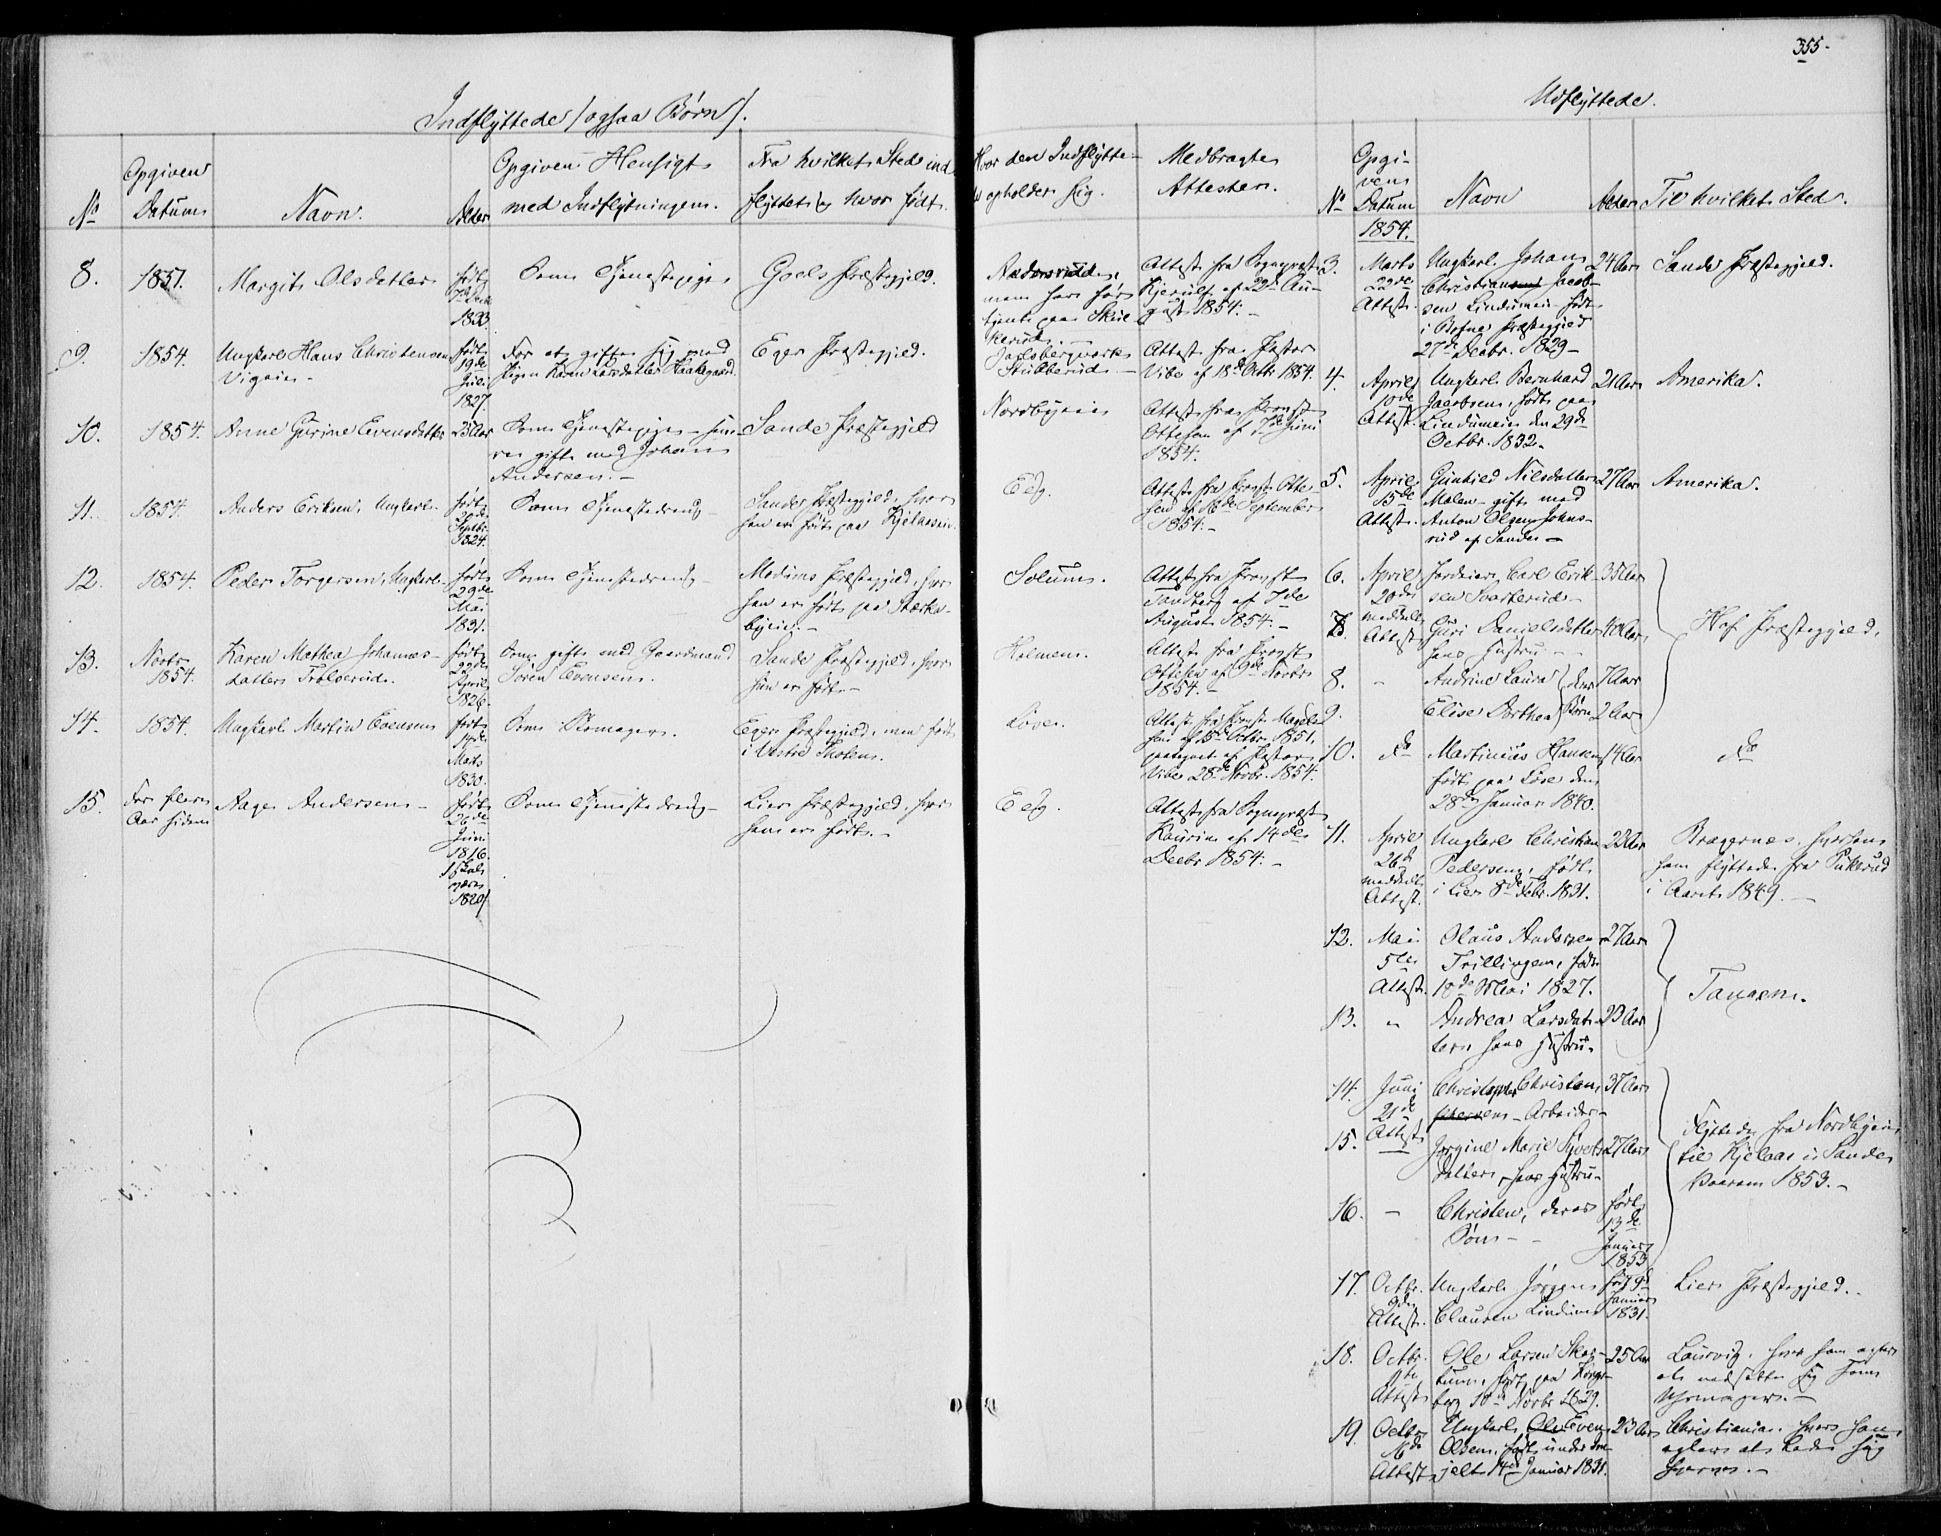 355.
Indflyttede /ogsaa Børn/.
No
Opgiven
Datum
Navn.
Alder
Opgiven Hensigt
med Indflytningen.
Fra hvilket Sted ind-
flyttet og hvor født.
Hvor den Indflytte-
de opholder sig.
Medbragte
Attester.
8.
1851.
Margit Olsdatter
født
1833
Som Tjenestepige
Goels Præstegjeld.
men har før
tjent paa
Attest fra Sogneprest
Kjerulf af 22de Au-
gust 1854. -
9.
1854.
Ungkarl Hans Christensen
Vigeie -
født
19de
Juli
1827.
For at gifte sig med
Pigen Karen Larsdatter
Eger Præstegjeld.
Jarlsbergværks
Stubberud -
Attest fra Pastor
Vibe af 18de Octbr 1854.
10.
1854.
Anne Gurine Evensdatter
25 Aar
Som Tjenestepige - sene-
re gift med Johan
Andersen. -
Sande Præstegjeld
Nordbyeie
Attest fra Provst
Ottesen af 17de Juni
1854.
11.
1854.
Anders Eriksen, Ungkarl
født
Septbr
1824.
Som Tjenestedreng -
Sande Præstegjeld, hvor
han er født paa
Eeg.
Attest fra Provst Otte-
sen af 16de September
1854. -
12.
1854.
Peder Torgersen, Ungkarl
født
29de
Mai
1831.
Som Tjenestedreng -
Modums Præstegjeld, hvor
han er født paa Stærke-
byeie. -
Solum.
Attest fra Provst
Tandberg af 7de
August 1854. -
13.
Novbr
1854.
Karen Mathea Johannes-
datter Trolserud.
født
22de
April
1826.
Som gift med Gaardmand
Søren Evensen.
Sande Præstegjeld, hvor
hun er født. -
Holmen.
Attest fra Provst
Ottesen af 9de Novbr
1854. -
14.
1854.
Ungkarl Martin Evensen
født
14de
Marts
1830.
Som Skomager.
Eger Præstegjeld, men født
i Vestre Thoten.
Løse.
Attest fra Provst
af 15de Octbr. 1851,
paategnet af Pastor
Vibe 28de Novbr. 1854.
15.
For flere
Aar siden
Aage Andersen -
født
26de
Juni
1816.
1820/
Som Tjenestedreng -
Lier Præstegjeld, hvor
han er født. -
Eeg.
Attest fra Sogneprest
Kaurin af 14de
Decbr 1854. -
Udflyttede.
No
Opgi-
ven
Datum
1854.
Navn
Alder
Til hvilket Sted.
3.
Marts
22de
Attest.
Ungkarl Johan
Christian Jacob-
sen Lindumeie født
i Botne Præstegjeld
27de Decbr. 1829 -
24 Aar
Sande Præstegjeld.
4.
April
10de
Attest.
Ungkarl Bernhard
Jacobsen, født paa
Lindumeie den 29de
Octbr. 1832.
21 Aar
Amerika.
5.
April
15de
Attest.
Gunhild Nilsdatter
Malen - gift med
Anton Olsen Johns-
rud af Sande -
27 Aar
Amerika.
6.
April
20de
meddelt
Attest
Carl Erik-
sen Svarterud -
35 Aar
Hof Præstegjeld.
7.
Guri Danielsdatter
hans Hustru - -
40 Aar
8.
-
Andrine Laura
deres
Børn
7 Aar
9.
Elise Dorthea
2 Aar
10.
do
Martinius Hansen
født paa Løse den
28de Januar 1840.
14 Aar
do
11.
April
26de
meddelt
Attest.
Ungkarl Christian
Pedersen, født
i Lier 8de Febr. 1831.
23 Aar
Bragernes, hvorhen
han flyttede fra Pukerud
i Aaret 1849. -
12.
Mai
5te
Attest.
Olaus Andersen
Trillingen, født
18de Mai 1827.
27 Aar
Tangen.
13.
"
Andrea Larsdat-
ter hans Hustru.
23 Aar
14.
Juni
21de
Attest
Christopher Christen-
sen - Arbeider -
37 Aar
Flyttede fra Nordbyeie
til Kjelaas i Sande
Vaaren 1853. -
15.
Jørgine Marie Syverts-
datter, hans Hustru -
27 Aar
16.
-
Christen, deres
Søn - -
født
13de
Januar
1853
17.
Octbr.
9de
Attest.
Ungkarl Jørgen
Clausen Lindum
født 9de
Januar
1831.
Lier Præstegjeld.
18.
Octbr.
11te
Attest
Ole Larsen Skog-
tuen, født paa Kongs-
berg 10de Novbr 1829.
25 Aar
Laurvig, hvor han agter
at nedsætte sig som
Uhrmager. -
19.
Octbr
16de
Attest
Ungkarl Ole Even
Olsen, født under
14de Januar 1831.
23 Aar
Christiania, hvor han
agter at lade sig
hverve. -